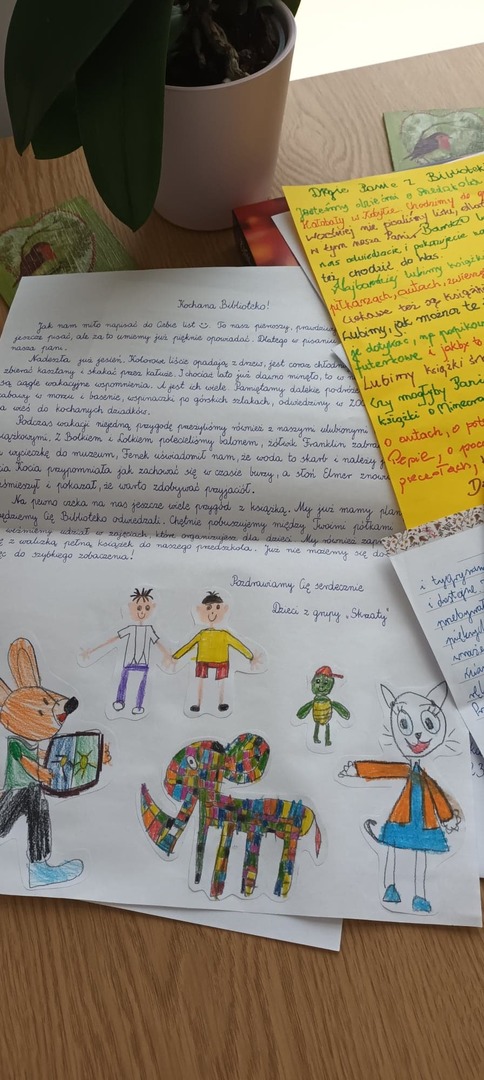 Kochana Biblioteko!
Jak nam miło napisać do Ciebie list. To nasz pierwszy, prawdziwy
jeszcze pisać, ale za to umiemy już pięknie opowiadać. Dlatego w pisaniu
nasza pani.
Nadeszła już jesień. Kolorowe liście opadają z drzew, jest coraz chłodniej
zbierać kasztany i skakać przez kałuże. I chociaż lato już dawno minęło, to w
są ciągle wakacyjne wspomnienia. A jest ich wiele. Pamiętamy dalekie podróże
zabawy w morzu i basenie, wspinaczki po górskich szlakach, odwiedziny w ZOO
na wieś do kochanych dziadków.
Podczas wakacji niejedną przygodę przeżyliśmy również z naszymi ulubionymi
książkowymi. Z Bolkiem i Lolkiem polecieliśmy balonem, żółwik Franklin zabrał
wycieczkę do muzeum, Fenek uświadomił nam, że woda to skarb i należy
Kocia przypomniała jak zachować się w czasie burzy, a słoń Elmer znowu
rozśmieszył i pokazał, że warto zdobywać przyjaciół.
Na pewno czeka na nas jeszcze wiele przygód z książką. My już mamy plan
będziemy Cię Biblioteko odwiedzali. Chętnie pobuszujemy między Twoimi półkami
weźmiemy udział w zajęciach, które organizujesz dla dzieci. My również
z walizką pełną książek do naszego przedszkola. Już nie możemy się
do szybkiego zobaczenia!
Pozdrawiamy Cię serdecznie
Dzieci z grupy „Skrzaty"
Drogie Panie z Bibliotek
Jesteśmy dziećmi z Przedszkola
Wcześniej nie
w tym nasza Pani
nas odwiedzacie i pokazujecie
też chodzić do Was.
Najbardziej lubimy książki
piłkarzach, autach,
Ciekawe też są książki
lubimy, jak można te
dotykać, np
futerkowe i jakby to
Lubimy książki
Czy mogłyby Panie
książki o Minecraft
o autach, o
Pepie, o
i dostępne